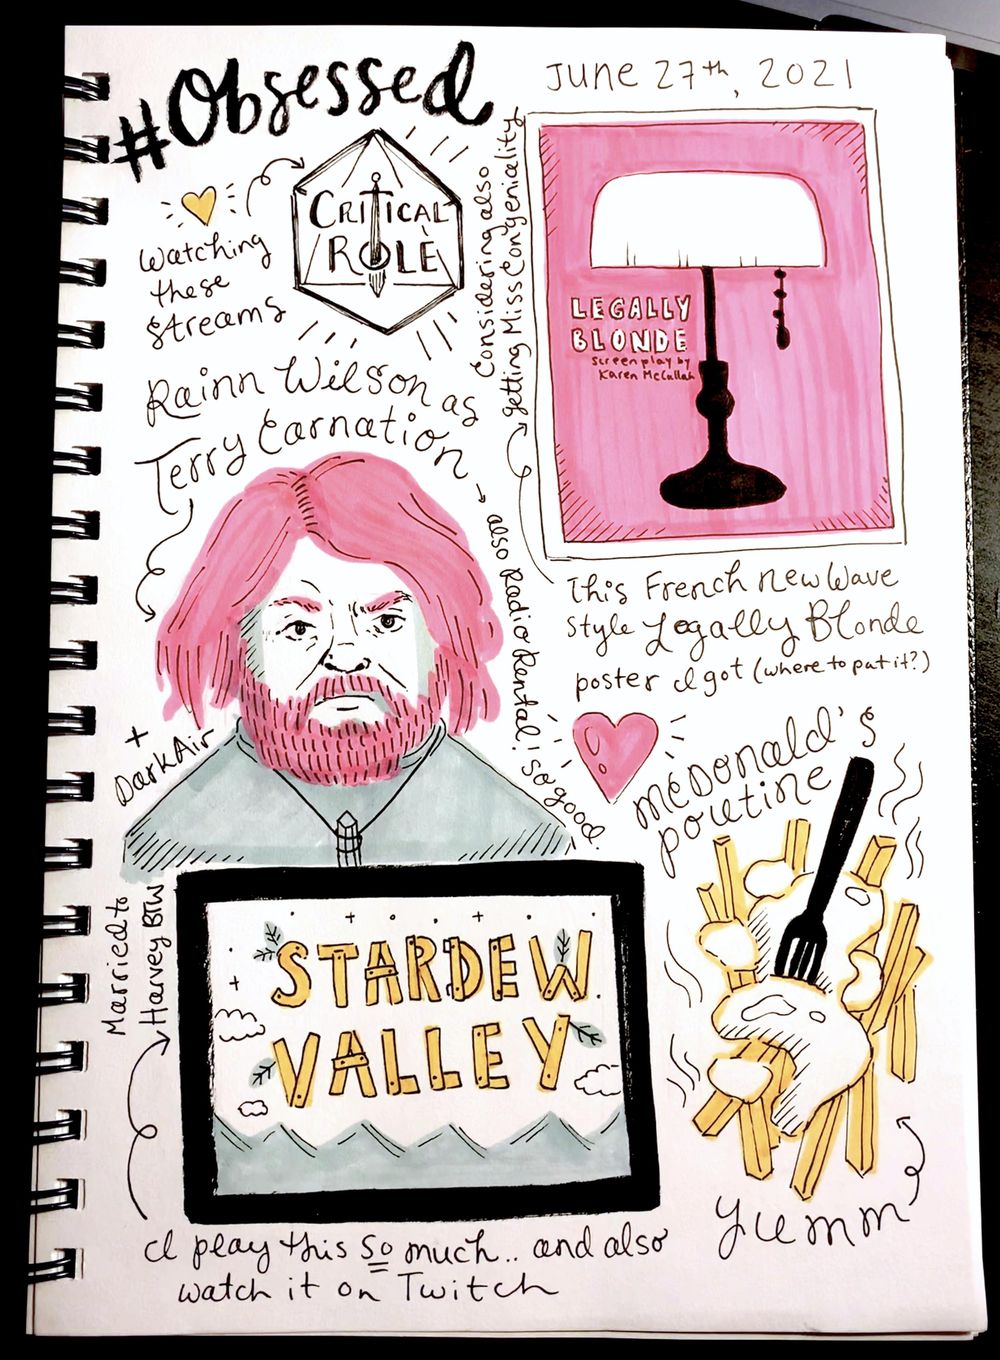 #Obsessed
June 27th, 2021
Watching
these
streams
CRITICAL
ROLE
Considering also
getting Miss Congeniality
LEGALLY
BLONDE
Screenplay by
Karen McCullah
This French new Wave
style Legally Blonde
poster I got (where to put it?)
Rainn Wilson as
Terry Carnation
also Radio Rental! So good.
+
Dark Air
McDonald's
poutine
Yumm
Married to
Harvey BTW
STARDEW
VALLEY
I play this so much.. and also
watch it on Twitch